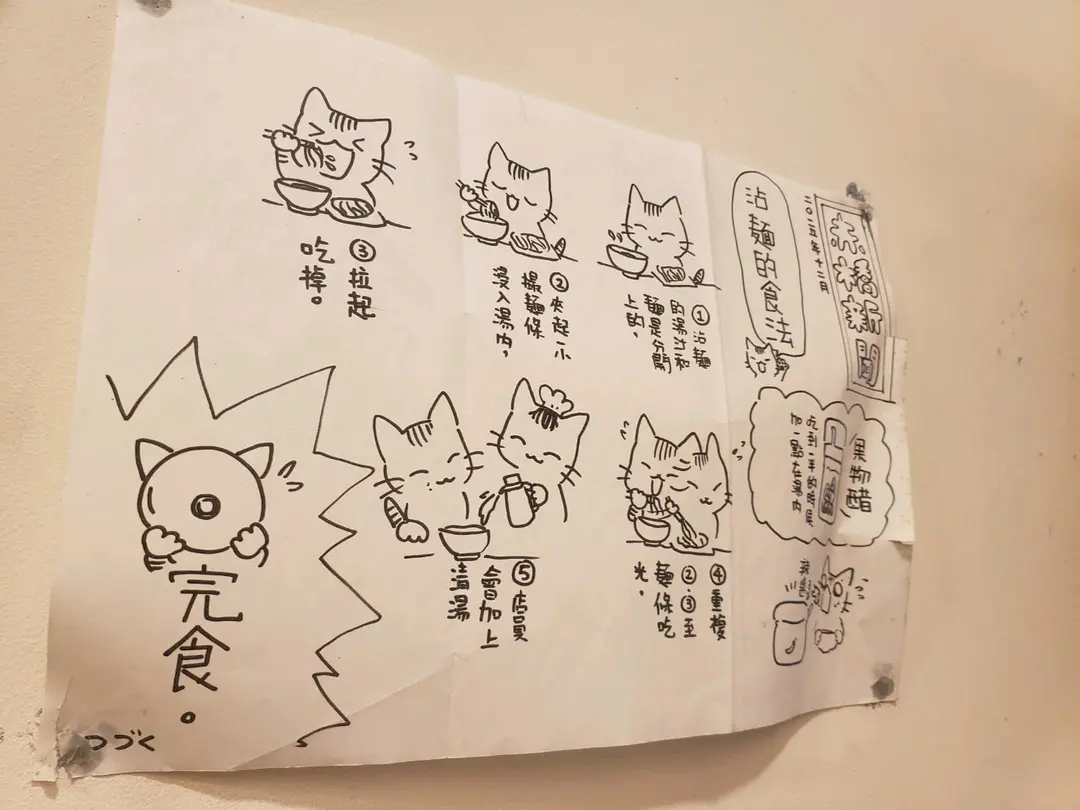 二〇二五年十二月
沾麵的食法
①沾麵
的湯汁和
麵是分開
上的。
②夾起小
撮麵條
浸入湯內。
③拉起
吃掉。
果物醋
吃到一半的時候
加一點在湯內
④重複
②.③至
麵條吃
光。
⑤店員
會加上
清湯
完食。
つづく